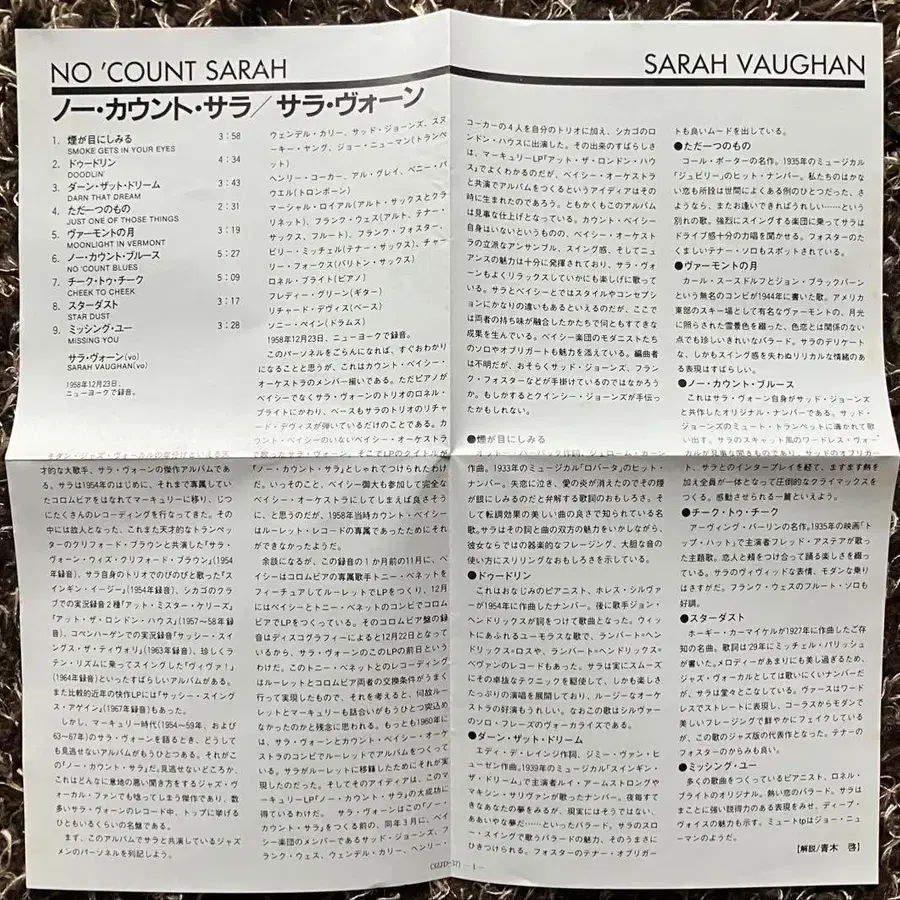 NO 'COUNT SARAH
SARAH VAUGHAN
ノー・カウント・サラ／サラ・ヴォーン
1. 煙が目にしみる 3：58
SMOKE GETS IN YOUR EYES
2. ドゥードリン 4：34
DOODLIN'
3. ダーン・ザット・ドリーム 3：43
DARN THAT DREAM
4. ただ一つのもの 2：31
JUST ONE OF THOSE THINGS
5. ヴァーモントの月 3：19
MOONLIGHT IN VERMONT
6. ノー・カウント・ブルース 5：27
NO 'COUNT BLUES
7. チーク・トゥ・チーク 5：09
CHEEK TO CHEEK
8. スターダスト 3：17
STAR DUST
9. ミッシング・ユー 3：28
MISSING YOU
サラ・ヴォーン(vo)
SARAH VAUGHAN(vo)
1958年12月23日、
ニューヨークで録音。
才的な大歌手、サラ・ヴォーンの傑作アルバムであ
る。サラは1954年のはじめに、それまで専属してい
たコロムビアをはなれてマーキュリーに移り、じつ
にたくさんのレコーディングを行なってきた。その
中には故人となった、これまた天才的なトランペッ
ターのクリフォード・ブラウンと共演した「サラ・
ヴォーン・ウィズ・クリフォード・ブラウン」(1954
年録音)、サラ自身のトリオでのびのびと歌った「ス
インギン・イージー」(1954年録音)、シカゴのクラ
ブでの実況録音2種「アット・ミスター・ケリーズ」
「アット・ザ・ロンドン・ハウス」(1957〜58年録
音)、コペンハーゲンでの実況録音「サッシー・スイ
ングス・ザ・ティヴォリ」(1963年録音)、珍しくラ
テン・リズムに乗ってスイングした「ヴィヴァ！」
(1964年録音)といったすばらしいアルバムがある。
また比較的近年の快作LPには「サッシー・スイング
ス・アゲイン」(1967年録音)もあった。
しかし、マーキュリー時代(1954〜59年、および
63〜67年)のサラ・ヴォーンを語るとき、どうして
も見逃せないアルバムがもうひとつある。それがこ
の「ノー・カウント・サラ」だ。見逃せないどころか、
これはどんなに意地の悪い聞き方をするジャズ・ヴ
ォーカル・ファンでも唸ってしまう傑作であり、数
多いサラ・ヴォーンのレコード中、トップに挙げる
ひともいるくらいの名盤である。
まず、このアルバムでサラと共演しているジャズ
メンのパーソネルを列記しよう。
ウェンデル・カリー、サッド・ジョーンズ、スヌ
ーキー・ヤング、ジョー・ニューマン(トランペ
ット)
ヘンリー・コーカー、アル・グレイ、ベニー・パ
ウエル(トロンボーン)
マーシャル・ロイアル(アルト・サックスとクラ
リネット)、フランク・ウェス(アルト、テナー・
サックス、フルート)、フランク・フォスター、
ビリー・ミッチェル(テナー・サックス)、チャー
リー・フォークス(バリトン・サックス)
ロネル・ブライト(ピアノ)
フレディー・グリーン(ギター)
リチャード・デヴィス(ベース)
ソニー・ペイン(ドラムス)
1958年12月23日、ニューヨークで録音。
このパーソネルをごらんになれば、すぐおわかり
になることと思うが、これはカウント・ベイシー・
オーケストラのメンバー揃いである。ただピアノが
ベイシーでなくサラ・ヴォーンのトリオのロネル・
ブライトにかわり、ベースもサラのトリオのリチャ
ード・デヴィスが弾いているだけのことである。カ
ウント・ベイシーのいないベイシー・オーケストラ
で歌ったサラ・ヴォーン、そこでLPのタイトルが
「ノー・カウント・サラ」としゃれてつけられたわけ
だ。いっそのこと、ベイシー御大も参加して完全な
ベイシー・オーケストラにしてしまえば良さそう
に、と思うのだが、1958年当時カウント・ベイシー
はルーレット・レコードの専属であったためにそれ
ができなかったようだ。
余談になるが、この録音の1か月前の11月に、ベ
イシーはコロムビアの専属歌手トニー・ベネットを
フィーチュアしてルーレットでLPをつくり、12月
にはベイシーとトニー・ベネットのコンビでコロム
ビアでLPをつくっている。そのコロムビア盤の録
音はディスコグラフィーによると12月22日となって
いるから、サラ・ヴォーンのこのLPの前日という
わけだ。このトニー・ベネットとのレコーディング
はルーレットとコロムビア両者の交換条件がうまく
行って実現したもので、それを考えると、何故ルー
レットとマーキュリーも話合いがもうひとつ突込め
なかったのかと残念に思われる。もっとも1960年に
は、サラ・ヴォーンとカウント・ベイシー・オーケ
ストラのコンビでルーレットでアルバムをつくって
いる。サラがルーレットに移籍したためにそれが実
現したのだった。そしてそのアイディアは、このマ
ーキュリーLP「ノー・カウント・サラ」の大成功に
得ているわけだ。 サラ・ヴォーンはこの「ノー・
カウント・サラ」をつくる前の、同年3月に、ベイ
シーのメンバーであるサッド・ジョーンズ、フ
ランク・ウェス、ウェンデル・カリー、ヘンリー・
コーカーの4人を自分のトリオに加え、シカゴのロ
ンドン・ハウスに出演した。その出来のすばらしさ
は、マーキュリーLP「アット・ザ・ロンドン・ハウ
ス」でよくわかるのだが、ベイシー・オーケストラ
と共演でアルバムをつくるというアイディアはその
時に生まれたのであろう。ともかくもこのアルバム
は見事な仕上げとなっている。カウント・ベイシー
自身はいないというものの、ベイシー・オーケスト
ラの立派なアンサンブル、スイング感、そしてニュ
アンスの魅力は十分に発揮されており、サラ・ヴォ
ーンもよくリラックスしていかにも楽しげに歌って
いる。サラとベイシーとではスタイルやコンセプシ
ョンにかなりの違いもあるといえるのだが、ここで
は両者の持ち味が融合したかたちで何ともすてきな
成果を生んでいる。ベイシー楽団のモダニストたち
のソロやオブリガートも魅力を添えている。編曲者
は不明だが、おそらくサッド・ジョーンズ、フラン
ク・フォスターなどが手掛けているのではなかろう
か。もしかするとクインシー・ジョーンズが手伝っ
たかもしれない。
●煙が目にしみる
オットー・ハーバック作詞、ジェローム・カーン
作曲。1933年のミュージカル「ロバータ」のヒット・
ナンバー。失恋に泣き、愛の炎が消えたのでその煙
が眼にしみるのだと弁解する歌詞のおもしろさ。そ
して転調効果の美しい曲の良さで知られている名
歌。サラはその詞と曲の双方の魅力をいかしながら、
彼女ならではの器楽的なフレージング、大胆な音の
使い方にスリリングなおもしろさを示している。
●ドゥードリン
これはおなじみのピアニスト、ホレス・シルヴァ
ーが1954年に作曲したナンバー。後に歌手ジョン・
ヘンドリックスが詞をつけて歌曲となった。ウィッ
トにあふれるユーモラスな歌で、ランバート＝ヘン
ドリックス＝ロスや、ランバート＝ヘンドリックス＝
ベヴァンのレコードもあった。サラは実にスムーズ
にその卓越なテクニックを駆使して、しかも楽しさ
たっぷりの演唱を展開しており、ルージーなオーケ
ストラの好演もうれしい。なおこの歌はシルヴァー
のソロ・フレーズのヴォーカライズである。
●ダーン・ザット・ドリーム
エディ・デ・レインジ作詞、ジミー・ヴァン・ヒ
ューゼン作曲。1939年のミュージカル「スインギン・
ザ・ドリーム」で主演者ルイ・アームストロングや
マキシン・サリヴァンが歌ったナンバー。夜毎すて
きなあなたの夢をみるが、現実にはそうではない、
ああいやな夢だ……といったバラード。サラのスロ
ー・スイングで歌うバラードの魅力、そのうまさに
ひきつけられる。フォスターのテナー・オブリガー
トも良いムードを出している。
●ただ一つのもの
コール・ポーターの名作。1935年のミュージカル
「ジュビリー」のヒット・ナンバー。私たちのはかな
い恋も所詮は世間によくある例のひとつだった、さ
ようなら、またお逢いできればうれしい……という
別れの歌。強烈にスイングする楽団に乗ってサラは
ドライブ感十分の力唱を聞かせる。フォスターのた
くましいテナー・ソロもスポットされている。
●ヴァーモントの月
カール・スースドルフとジョン・ブラックバーン
という無名のコンビが1944年に書いた歌。アメリカ
東部のスキー場として有名なヴァーモントの、月光
に照らされた雪景色を綴った、色恋とは関係のない
点でも珍しいきれいなバラード。サラのデリケート
な、しかもスイング感を失わぬリリカルな情緒のあ
る表現はすばらしい。
●ノー・カウント・ブルース
これはサラ・ヴォーン自身がサッド・ジョーンズ
と共作したオリジナル・ナンバーである。サッド・
ジョーンズのミュート・トランペットに導かれて歌
い出す。サラのスキャット風のワードレス・ヴォー
カルが見事な聞きものであり、サッドのオブリガー
ト、サラとのインタープレイを経て、ますます熱を
加え全員が一体となって圧倒的なクライマックスを
つくる。感動させられる一篇といえよう。
●チーク・トゥ・チーク
アーヴィング・バーリンの名作。1935年の映画「ト
ップ・ハット」で主演者フレッド・アステアが歌っ
た主題歌。恋人と頬をつけ合って踊る楽しさを綴っ
ている。サラのヴィヴィッドな表情、モダンな乗り
はさすがだ。フランク・ウェスのフルート・ソロも
好調。
●スターダスト
ホーギー・カーマイケルが1927年に作曲したご存
知の名曲。歌詞は'29年にミッチェル・パリッシュ
が書いた。メロディーがあまりにも美し過ぎるため、
ジャズ・ヴォーカルとしては歌いにくいナンバーだ
が、サラは堂々とこなしている。ヴァースはワード
レスでストレートに表現し、コーラスからモダンで
美しいフレージングで鮮やかにフェイクしている
が、この歌のジャズ版の代表作となった。テナーの
フォスターのからみも良い。
●ミッシング・ユー
多くの歌曲をつくっているピアニスト、ロネル・
ブライトのオリジナル。熱い恋のバラード。サラは
まことに強い説得力のある表現をみせ、ディープ・
ヴォイスの魅力も示す。ミュートtpはジョー・ニュ
ーマンのようだ。
【解説／青木 啓】
(32JD-37) — 1 —